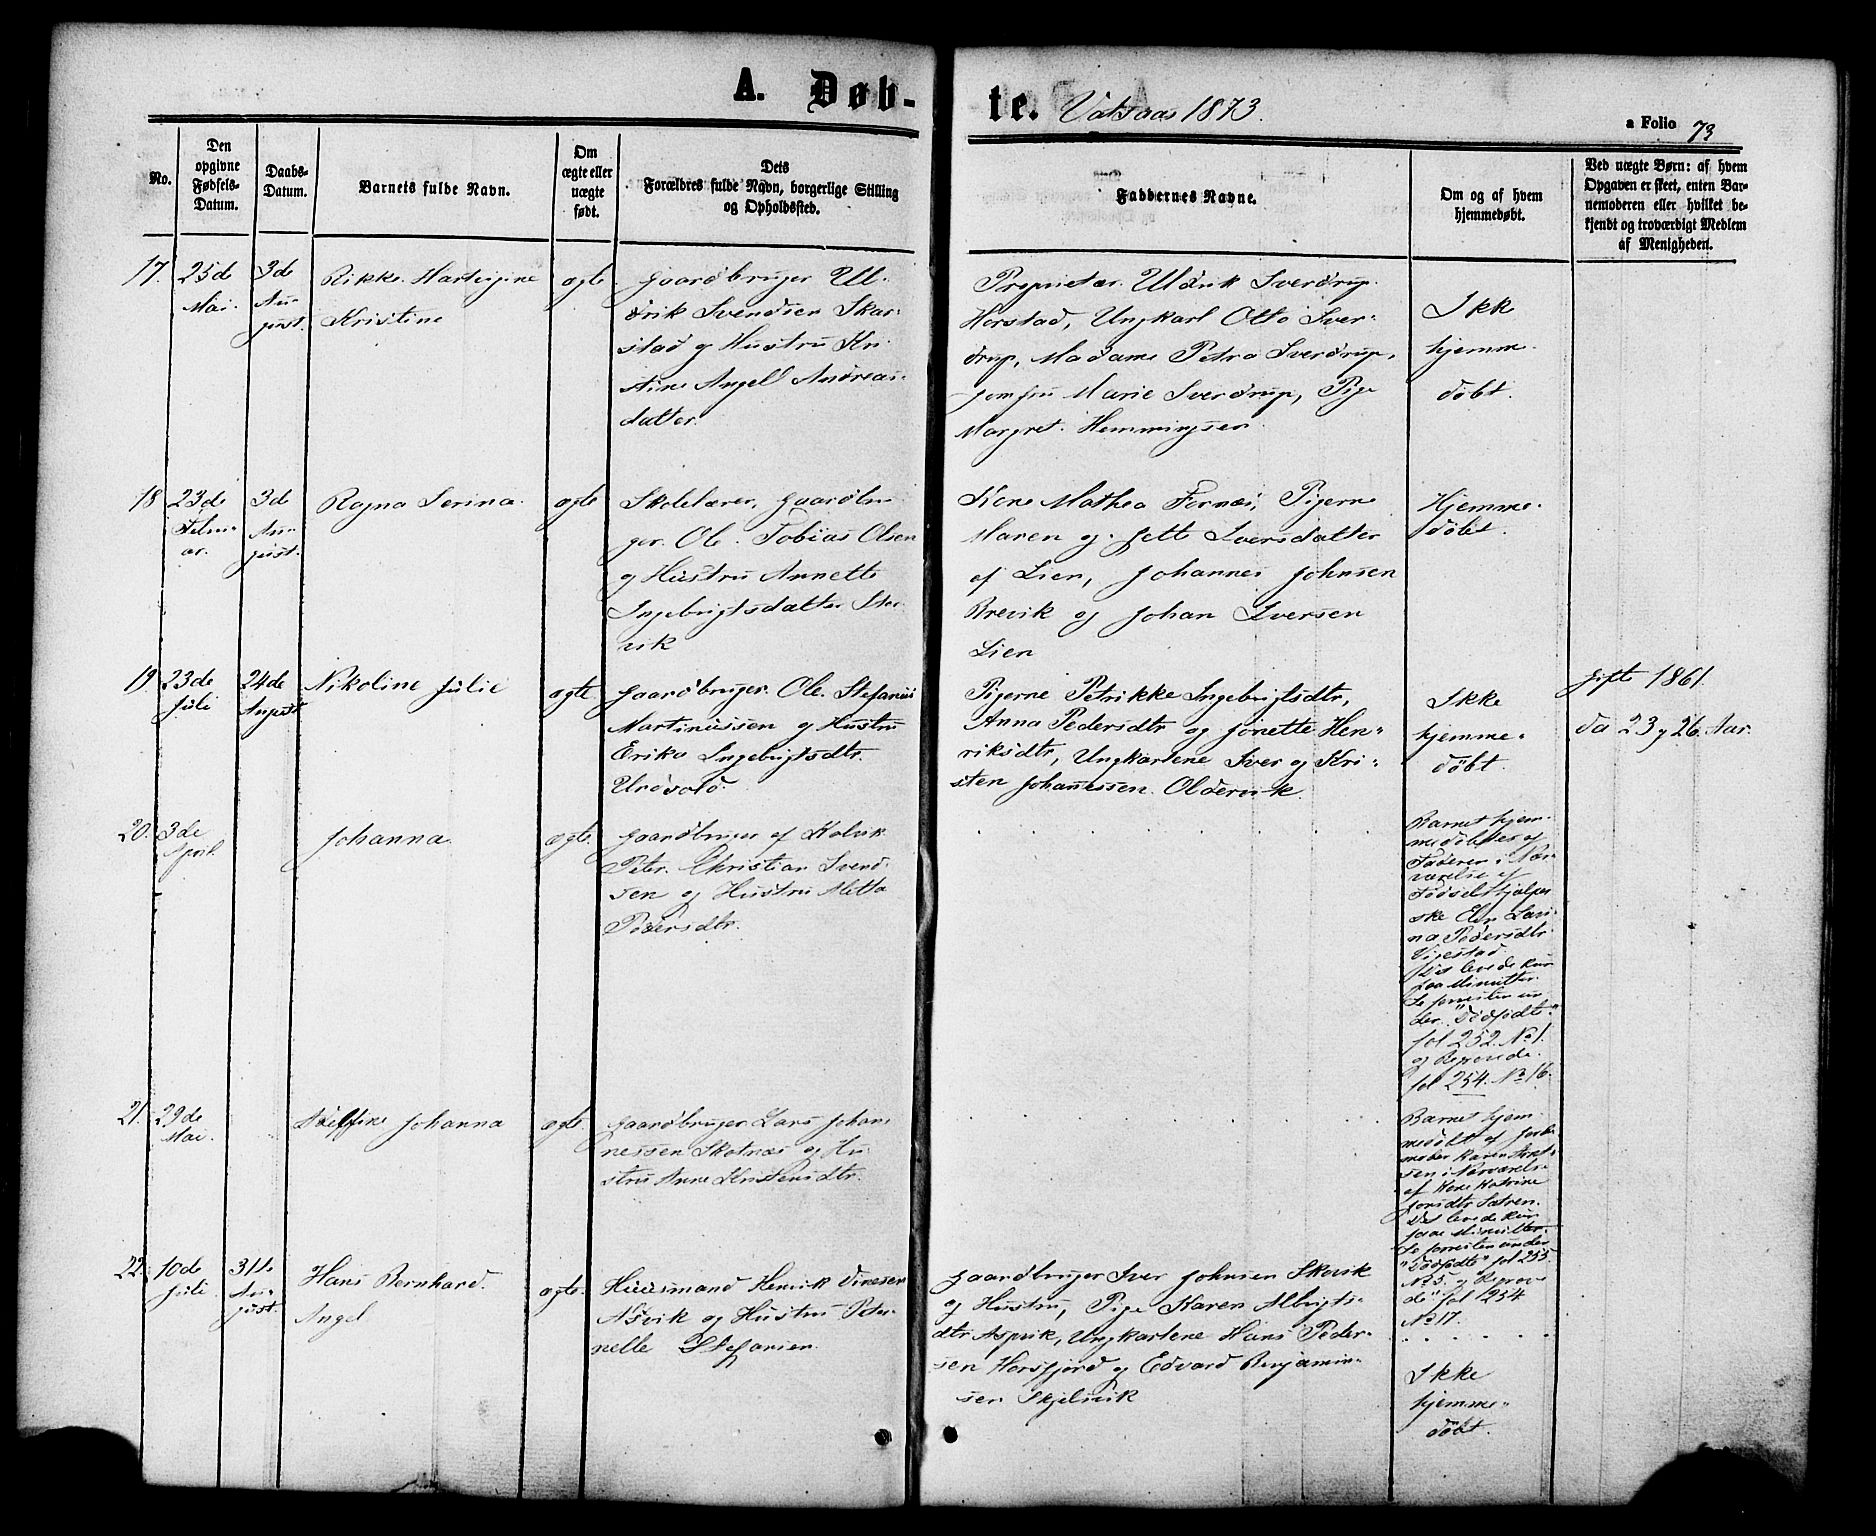 A. Døb-
te. Vatsaas 1873.
a Folio 73
No.
Den opgivne Fødsels-Datum.
Daabs-Datum.
Barnets fulde Navn.
Om ægte eller uægte født.
Dets Forældres fulde Navn, borgerlige Stilling og Opholdssted.
Faddernes Navne.
Om og af hvem hjemmedøbt.
Ved uægte Børn: af hvem Opgaven er skeet, enten Barnemoderen eller hvilket bekjendt og troværdigt Medlem af Menigheden.
17.
25de
Mai.
3de
Au-
gust.
Rikke Hartvigine
Kristine
ægte
Gaardbruger Ul-
drik Svendsen Skar-
stad og Hustru Kri-
stine Angell Andreas-
datter.
Proprietær Uldrik Sverdrup
Horstad, Ungkarl Otto Sver-
drup, Madame Petra Sverdrup,
Jomfru Marie Sverdrup, Pige
Margret Hemmingsen.
Ikke
hjemme-
døbt.
18
23de
Febru-
ar.
3de
Au-
gust.
Ragna Serina
ægte
Skolelærer, Gaardbru
ger Ole Tobias Olsen
og Hustru Annette
Ingebrigtsdatter Stor-
vik
Kone Mathea Fornæs, Pigerne
Maren og Jette Iversdatter
af Lien, Johannes Johnsen
Brevik og Johan Iversen
Lien
Hjemme-
døbt.
19
23de
Juli
24de
August
Nikoline Julie
ægte
Gaardbruger Ole Stefanus
Martinussen og Hustru
Erika Ingebrigtsdtr.
Urdvold.
Pigerne Petrikke Ingebrigtsdtr,
Anna Pedersdtr og Jonette Hen-
riksdtr, Ungkarlene Iver og Kri-
sten Johannessen Oldervik.
Ikke
hjemme-
døbt.
gifte 1861
da 23 og 26 Aar.
20.
3de
April.
Johanna
ægte.
Gaardbruger af Kalvik
Peter Christian Svend-
sen og Hustru Metta
Pedersdtr.
Barnet hjem-
medøbtes af
Faderen i Nær-
værelse af
Fødselshjælper-
ske Elen Lari-
na Pedersdtr
Vigestad
Det levede kun
faa Minutter.
Se forresten un-
der "Dødfødte"
fol 252. No 1.
og Begravede
fol 254. No 16.
21.
29de
Mai.
Delfine Johanna
ægte
Gaardbruger Lars Johan-
nessen Skotnes og Hu-
stru Anne Kristensdtr.
Barnet hjem-
medøbt af Jorde-
moder Karen
sen i Nærværelse
af Kone Katrine
Jonsdtr Sætren.
Det levede kun
faae Minutter.
Se forresten under
"Dødfødte" fol 255.
No 5. og Begrave-
de" fol 254
No 17.
22.
10de
Juli
31te
Au-
gust.
Hans Bernhard
Angel
ægte.
Huusmand Henrik
og Hustru Peter-
nelle Stefansen.
Gaardbruger Iver Johnsen Skavik
og Hustru, Pige Karen Albrigts-
dtr Aspvik, Ungkarlene Hans Peder-
sen Horsfjord og Edvard Benjamin-
sen Skjelvik
Ikke
hjemme-
døbt.